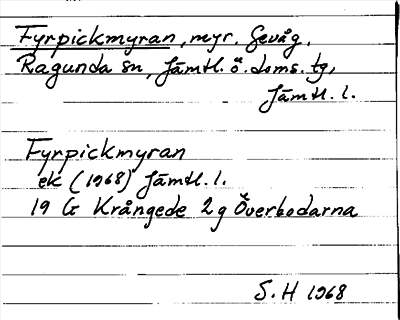 Fyrpickmyran, myr. Gevåg,
Ragunda sn, Jämtl. ö. doms. tg,
Jämtl. l.
Fyrpickmyran
ek (1968) Jämtl. l.
19 G Krångede 2 g Överbodarna
S. H 1968